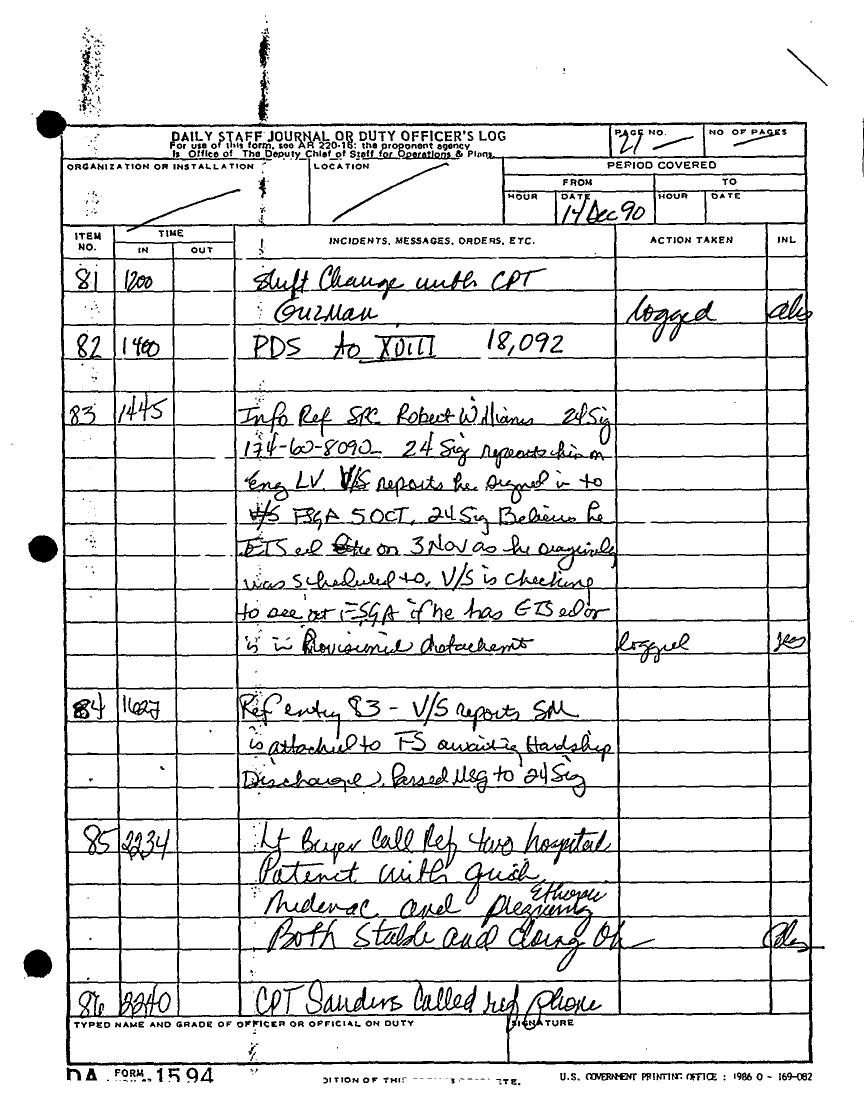 DAILY STAFF JOURNAL OR DUTY OFFICER'S LOG
For use of this form, see AR 220-15; the proponent agency
is Office of The Deputy Chief of Staff for Operations & Plans.
PAGE NO.
21
NO OF PAGES
ORGANIZATION OR INSTALLATION
LOCATION
PERIOD COVERED
FROM
TO
HOUR
DATE
14 Dec 90
HOUR
DATE
ITEM NO.
TIME
IN
OUT
INCIDENTS, MESSAGES, ORDERS, ETC.
ACTION TAKEN
INL
81 1200 Shift Change with CPT
Guzman logged
82 1400 PDS to XVIII 18,092
83 1445 Info Ref SPC Robert Williams 24 Sig
174-60-8090 24 Sig reports him on
Eng LV. V/S reports he signed in to
V/S FSGA 5 OCT. 24 Sig Believes he
ETS ed on 3 Nov as he originally
was scheduled to. V/S is checking
to see at FSGA if he has ETS ed or
is in Provisional detachment logged
84 1627 Ref entry 83 - V/S reports SM
is attached to FS awaiting Hardship
Discharge. Passed Msg to 24 Sig
85 2234 Lt Call Ref two hospital
Patient with
Medevac and
Both Stable and doing Ok
86 2240 CPT Sanders Called ref phone
TYPED NAME AND GRADE OF OFFICER OR OFFICIAL ON DUTY
SIGNATURE
DA FORM 1594
DITION OF THIS TE.
U.S. GOVERNMENT PRINTING OFFICE : 1986 O - 169-082